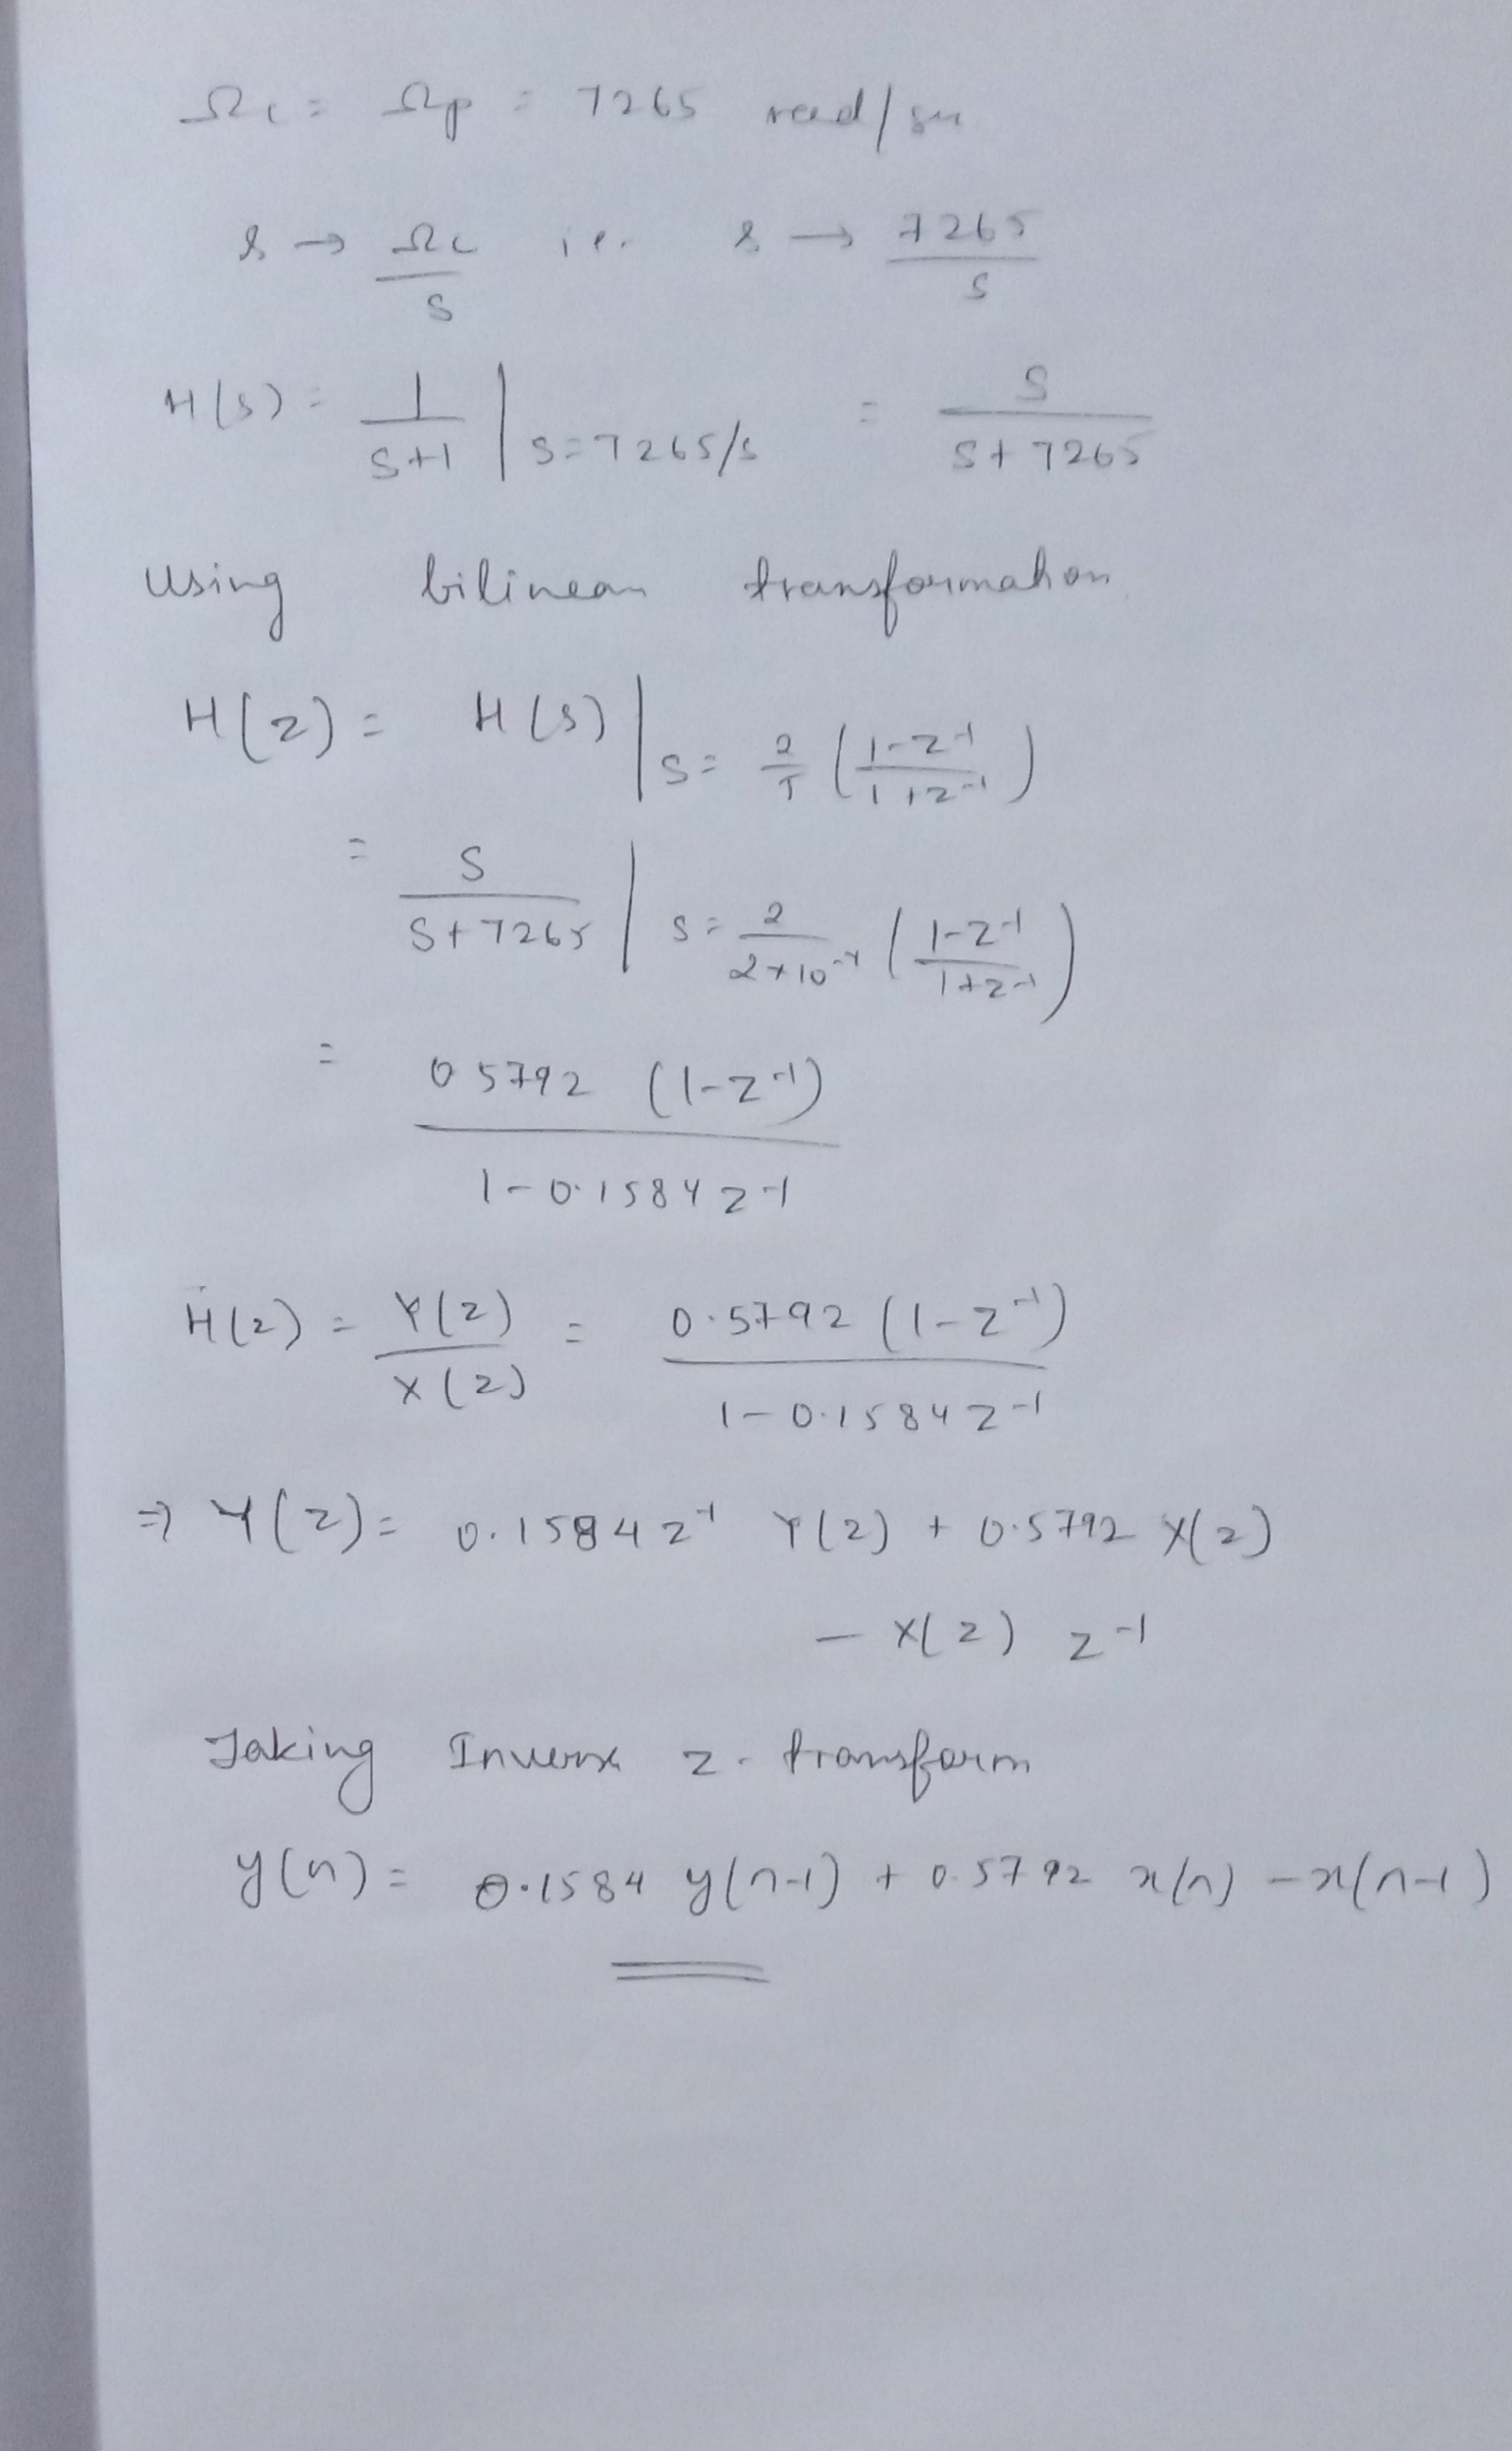 Ωc = Ωp = 7265 rad/sec
s → Ωc/s i.e. s → 7265/s
H(s) = 1/(s+1) | s=7265/s = s/(s+7265)
Using bilinear transformation
H(z) = H(s) | s = 2/T ((1-z^-1)/(1+z^-1))
= s/(s+7265) | s = 2/(2×10^-4) ((1-z^-1)/(1+z^-1))
= 0.5792 (1-z^-1)
1-0.1584z^-1
H(z) = Y(z)/X(z) = 0.5792 (1-z^-1)/(1-0.1584z^-1)
⇒ Y(z) = 0.1584z^-1 Y(z) + 0.5792 X(z)
- X(z) z^-1
Taking Inverse z-transform
y(n) = 0.1584 y(n-1) + 0.5792 x(n) - x(n-1)